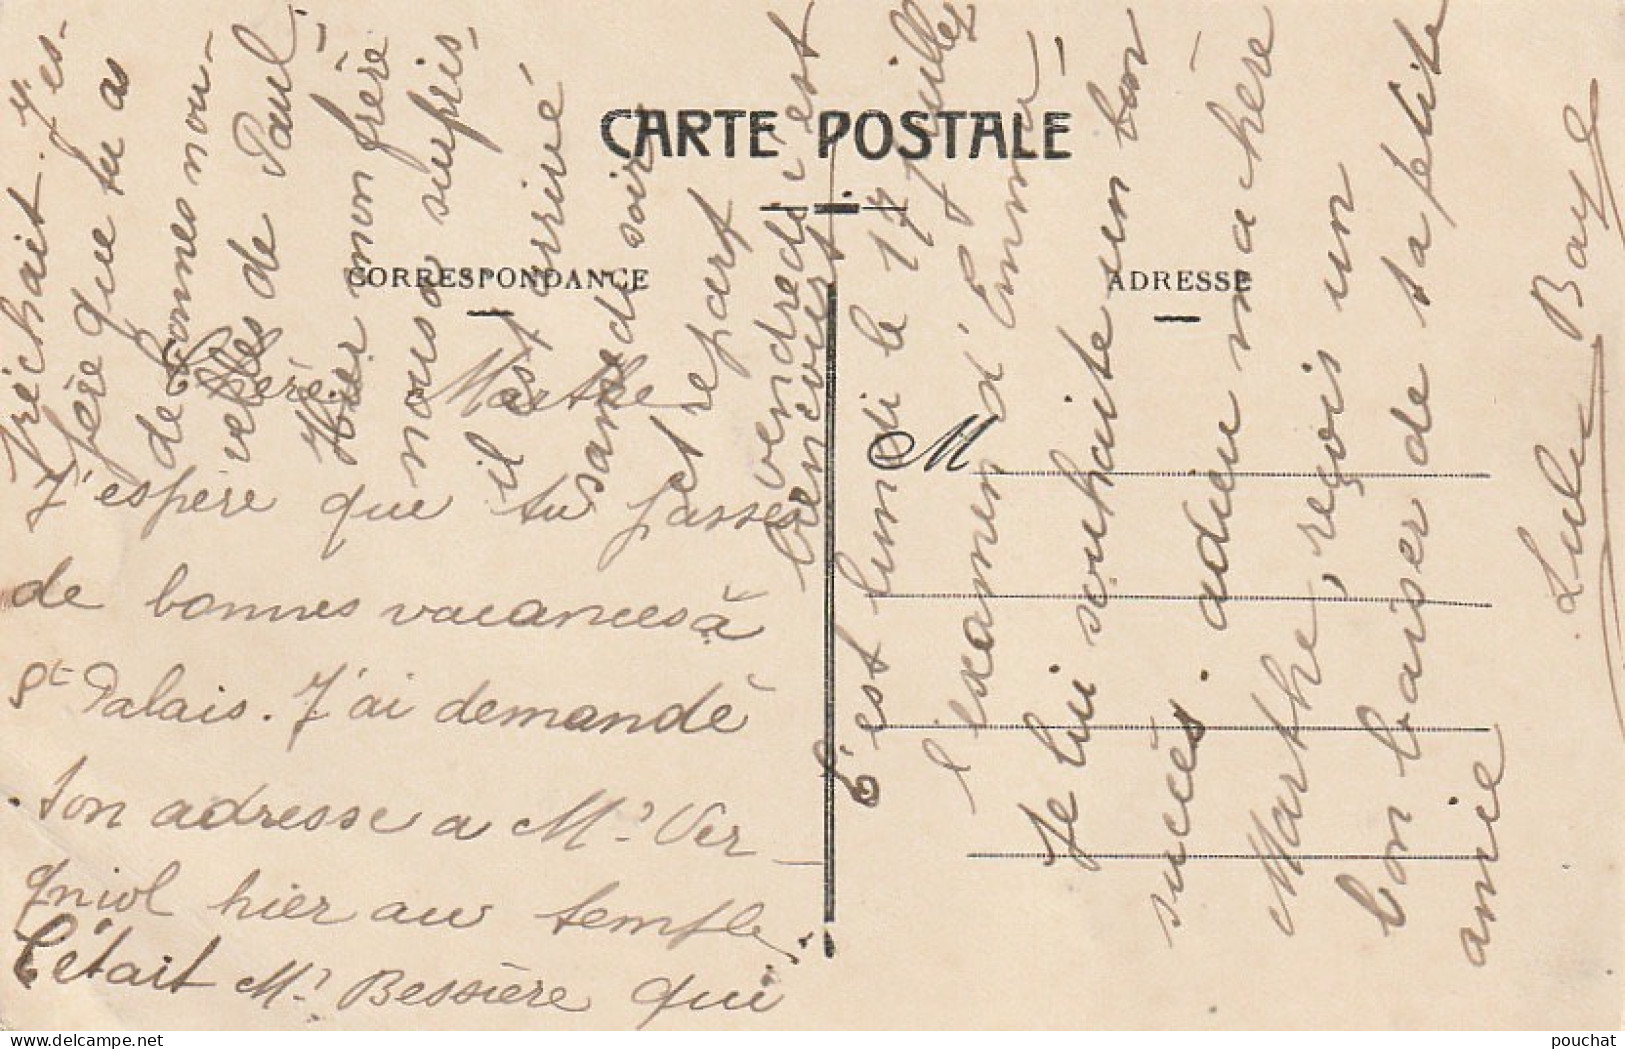 CARTE POSTALE
CORRESPONDANCE
ADRESSE
M
Chère Marthe
J'espère que tu passes
de bonnes vacances à
St Palais. J'ai demandé
ton adresse a Mr Ver-
gniol hier au temple,
C'était Mr Bessière qui
prêchait. J'es-
père que tu as
de bonnes nou-
velles de Paul.
Hier mon frère
nous a surpris,
il est arrivé
samedi soir
et repart
vendredi c'est
bien court
C'est lundi le 17 juillet
l'examen d'Emma
Je lui souhaite un bon
succès. adieu ma chère
Marthe, reçois un
bon baiser de ta petite
amie
Lulu Baye
pouchat
www.delcampe.net